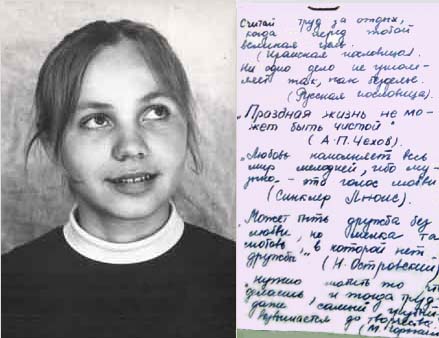 Считай труд за отдых,
когда перед тобой
великая цель.
(Иранская пословица).
Ни одно дело не утом-
ляет так, как безделье.
(Русская пословица).
„Праздная жизнь не мо-
жет быть чистой"
(А.П.Чехов).
„Любовь наполняет весь
мир мелодией, ибо му-
зыка – это голос любви
(Синклер Льюис).
„Может быть дружба без
любви, но мелка та
любовь, в которой нет
дружбы"
(Н. Островский)
„Нужно любить то, что
делаешь, и тогда труд –
даже самый грубый –
возвышается до творчества.
(М. Горький